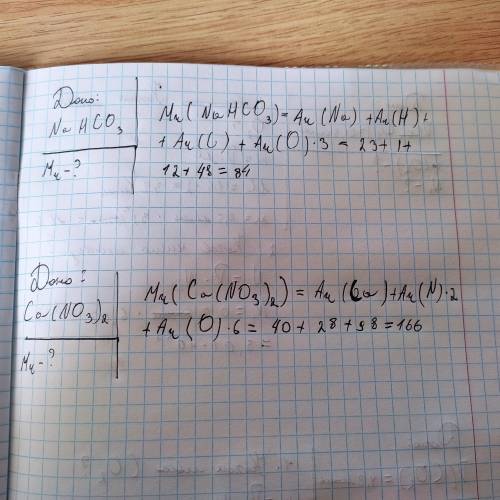 Дано:
NaHCO₃
Mr-?
Mr(NaHCO₃)=Ar(Na)+Ar(H)+
+Ar(C)+Ar(O)·3=23+1+
12+48=84
Дано:
Ca(NO₃)₂
Mr-?
Mr(Ca(NO₃)₂)=Ar(Ca)+Ar(N)·2
+Ar(O)·6=40+28+98=166